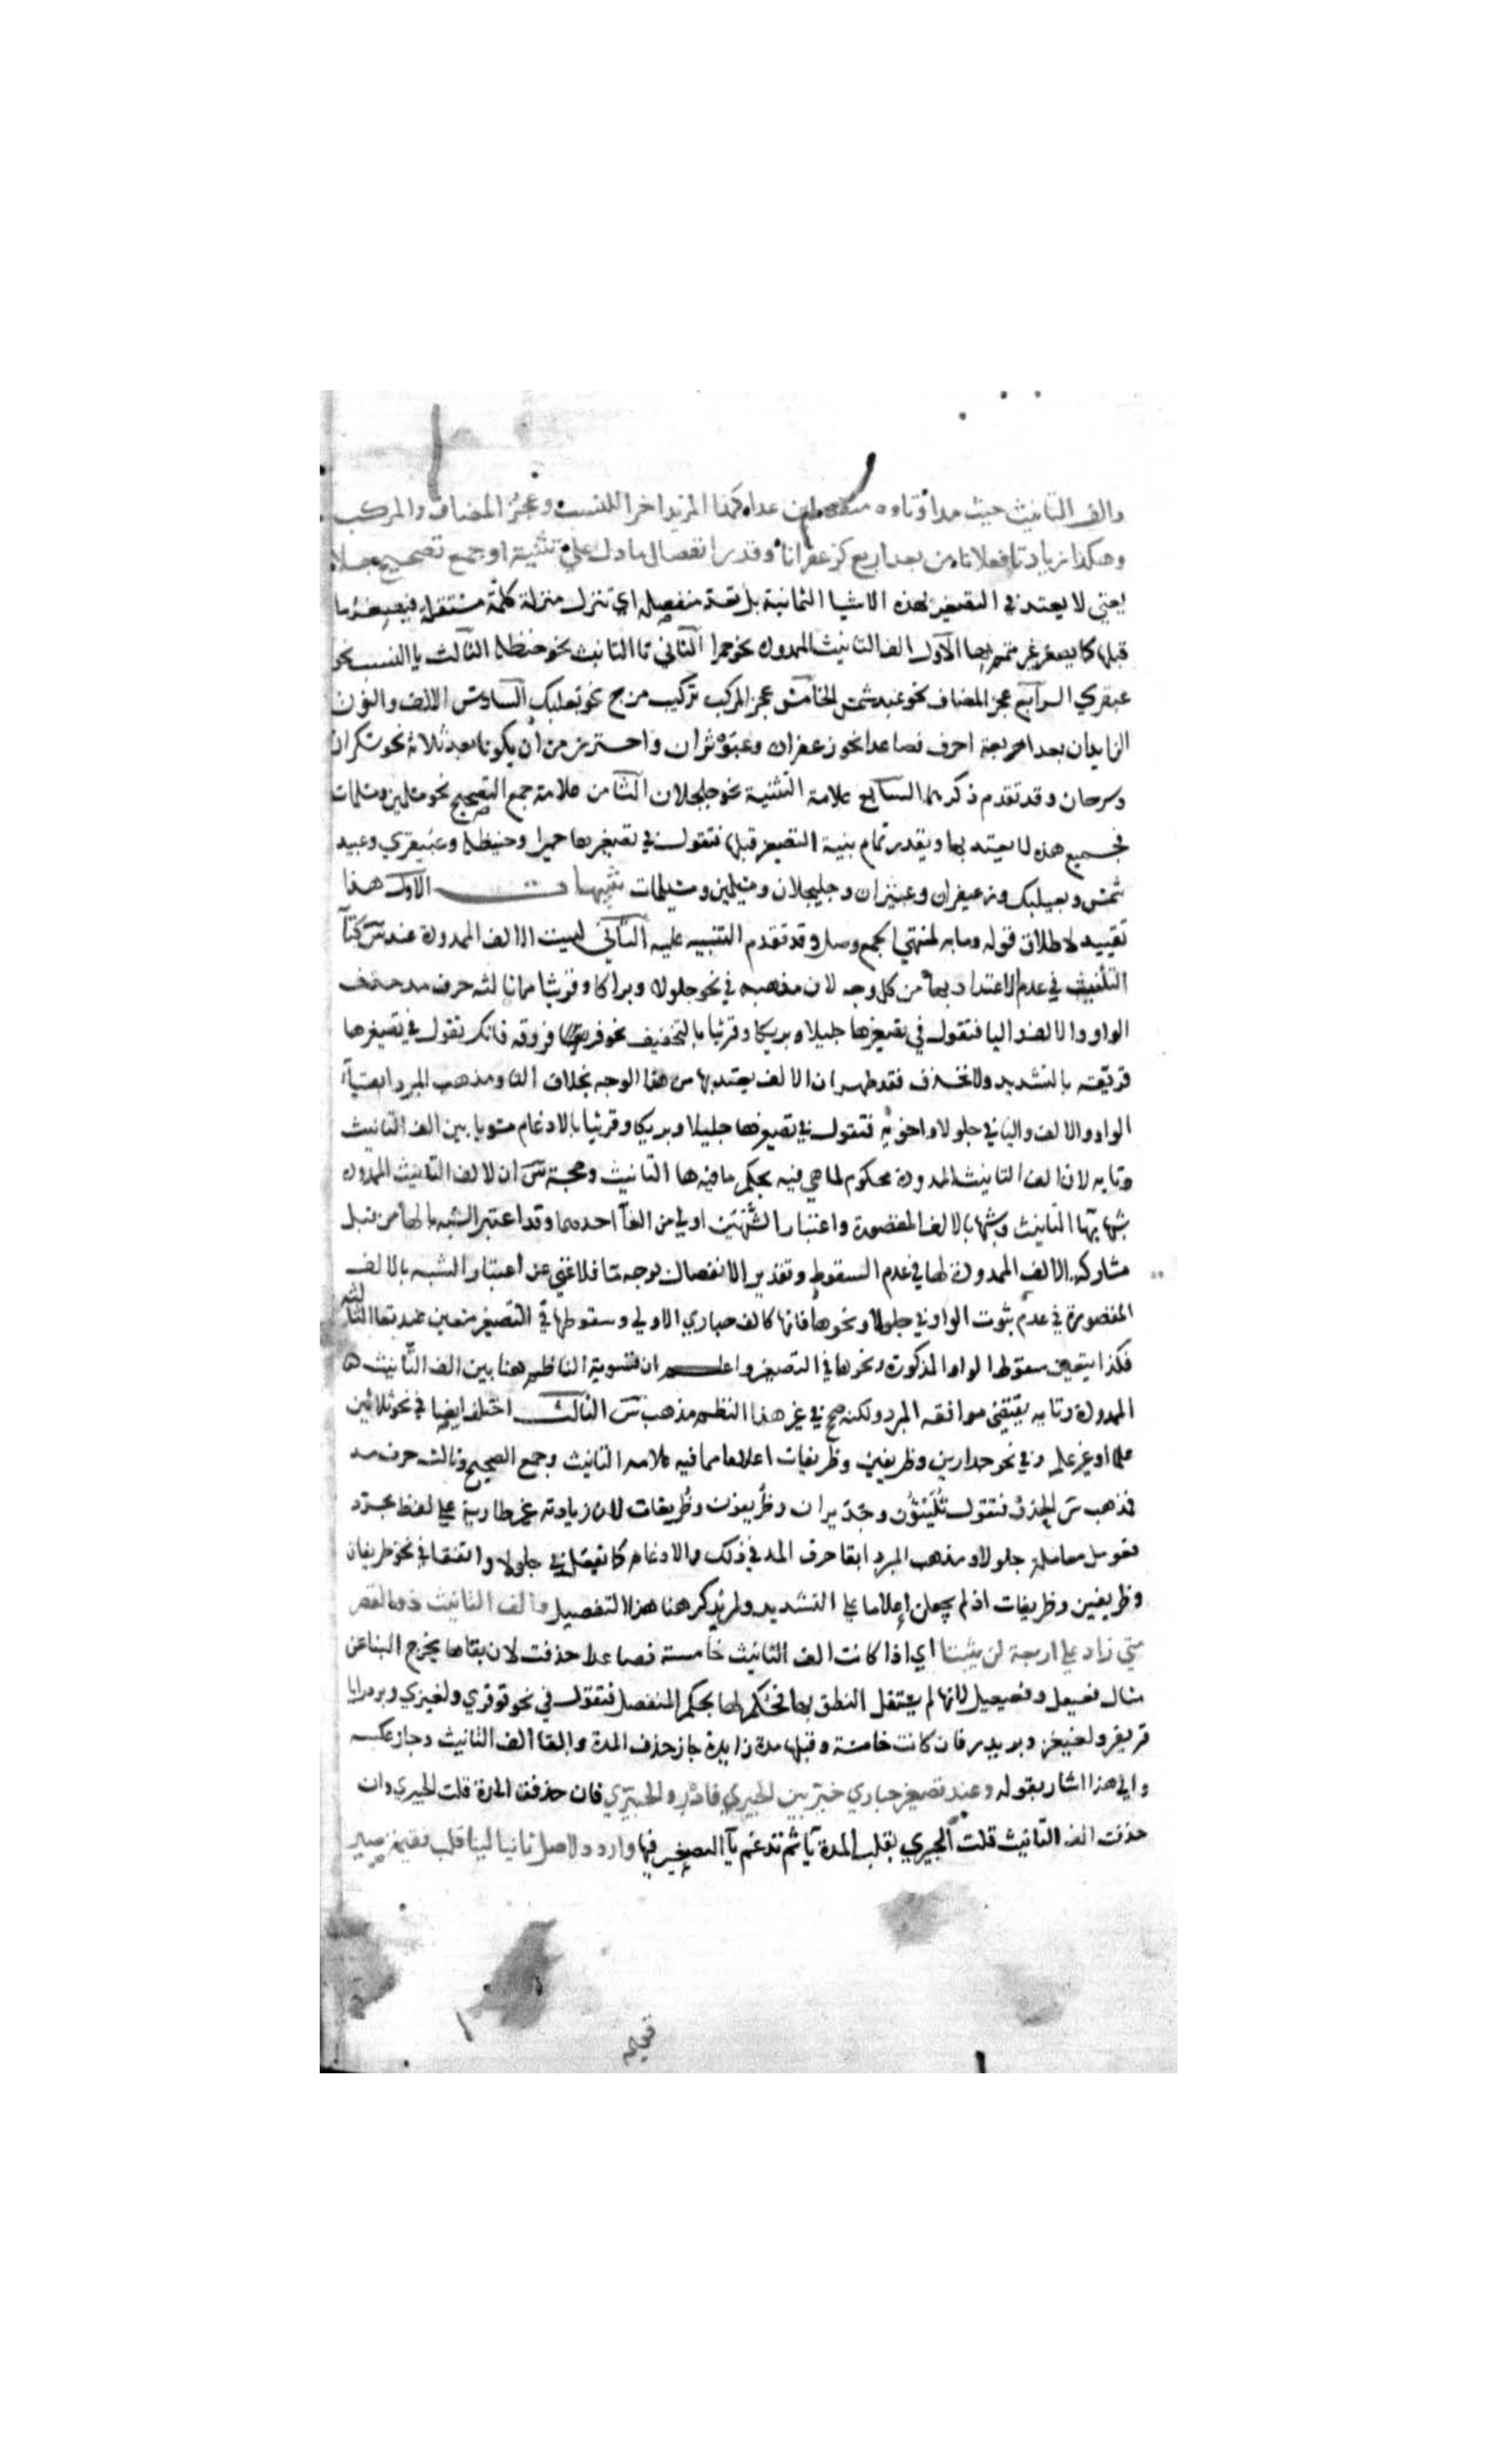 والف التانيث حيث مدا وتاوه منفصلين عدا كذا المزيد اخرا للنسب وعجز المضاف والمركب
وهكذا زيادتا فعلانا من بعد اربع كزعفرانا وقدر انفصال ما دل على تثنية او جمع تصحيح جلا
يعني لا يعتد في التصغير بهذه الاشيا الثمانية بل تعد منفصلة اي تنزل منزلة كلمة مستقلة فيصغر ما
قبلها كما يصغر غير متمم بها الاول الف التانيث الممدودة نحو حمرا الثاني تا التانيث نحو حنظلة الثالث يا النسب نحو
عبقري الرابع عجز المضاف نحو عبد شمس الخامس عجز المركب تركيب مزج نحو بعلبك السادس الالف والنون
الزايدان بعد اربعة احرف فصاعدا نحو زعفران وعبوثران واحترز من ان يكونا بعد ثلاثة نحو سكران
وسرحان وقد تقدم ذكرهما السابع علامة التثنية نحو جلجلان الثامن علامة جمع التصحيح نحو مسلمين ومسلمات
فجميع هذه لا يعتد بها ويقدر تمام بنية التصغير قبلها فتقول في تصغيرها حميرا وحنيظلة وعبيقري وعبيد
شمس وبعيلبك وزعيفران وعبيثران وجليجلان ومسيلمين ومسيلمات تنبيهات الاول هذا
تقييد لاطلاق قوله وما به لمنتهى الجمع وصل وقد تقدم التنبيه عليه الثاني ليست الالف الممدودة عند س كتا
التانيث في عدم الاعتداد بها من كل وجه لان مذهبه في نحو جلولا وبراكا وقريثا مما ثالثه حرف مد حذف
الواو والالف واليا فتقول في تصغيرها جليلا وبريكا وقريثا بالتخفيف بخلاف فروقة فانك تقول في تصغيرها
فريقة بالتشديد ولا تحذف فقد ظهر ان الالف يعتد بها من هذا الوجه بخلاف التا ومذهب المبرد ابقا
الواو والالف واليا في جلولا واخوته فتقول في تصغيرها جليلا وبريكا وقريثا بالادغام مسويا بين الف التانيث
وتايه لان الف التانيث الممدودة محكوم لما هي فيه بحكم ما فيه ها التانيث وحجة س ان لالف التانيث الممدودة
شبها بتا التانيث وشبها بالالف المقصورة واعتبار الشبهين اولى من الغا احدهما وقد اعتبر الشبه بالها من قبل
مشاركة الالف الممدودة لها في عدم السقوط وتقدير الانفصال بوجه ما فلا غنى عن اعتبار الشبه بالالف
المقصورة في عدم ثبوت الواو في جلولا ونحوها فانها كالف حباري الاولى وسقوطها في التصغير متعين عند بقا الثالثة
فكذا يتعين سقوط الواو المذكورة ونحوها في التصغير واعلم ان تسوية الناظم هنا بين الف التانيث
الممدودة وتايه يقتضي موافقة المبرد ولكنه صحح في غير هذا النظم مذهب س الثالث اختلف ايضا في نحو ثلاثين
علما او غير علم وفي نحو جدارين وظريفين وظريفات اعلاما مما فيه علامة التانيث وجمع الصحيح وثالثه حرف مد
فمذهب س الحذف فتقول ثليثون وجديران وظريفون وظريفات لان زيادته غير طارية على لفظ مجرد
فعومل معاملة جلولا ومذهب المبرد ابقا حرف المد في ذلك والادغام كما تفعل في جلولا واتفقا في نحو ظريفان
وظريفين وظريفات اذ لم يجعلن اعلاما على التشديد ولم يذكر هنا هذا التفصيل والف التانيث ذو القصر
متى زاد على اربعة لن يثبتا اي اذا كانت الف التانيث خامسة فصاعدا حذفت لان بقاها يخرج البنا عن
مثال فعيعل وفعيعيل لانها لم يستقل النطق بها فحكم لها بحكم المنفصل فتقول في نحو قرقري ولغيزي وبردرايا
قريقر ولغيغيز وبريدر فان كانت خامسة وقبلها مدة زايدة جاز حذف المدة وابقا الف التانيث وجاز عكسه
والى هذا اشار بقوله وعند تصغير حباري خير بين الحبيري فادر والحبير فان حذفت المدة قلت الحبيري وان
حذفت الف التانيث قلت الحبير بقلب المدة يا ثم تدغم يا التصغير فيها واردد لاصل ثانيا لينا قلب فقيمة صير